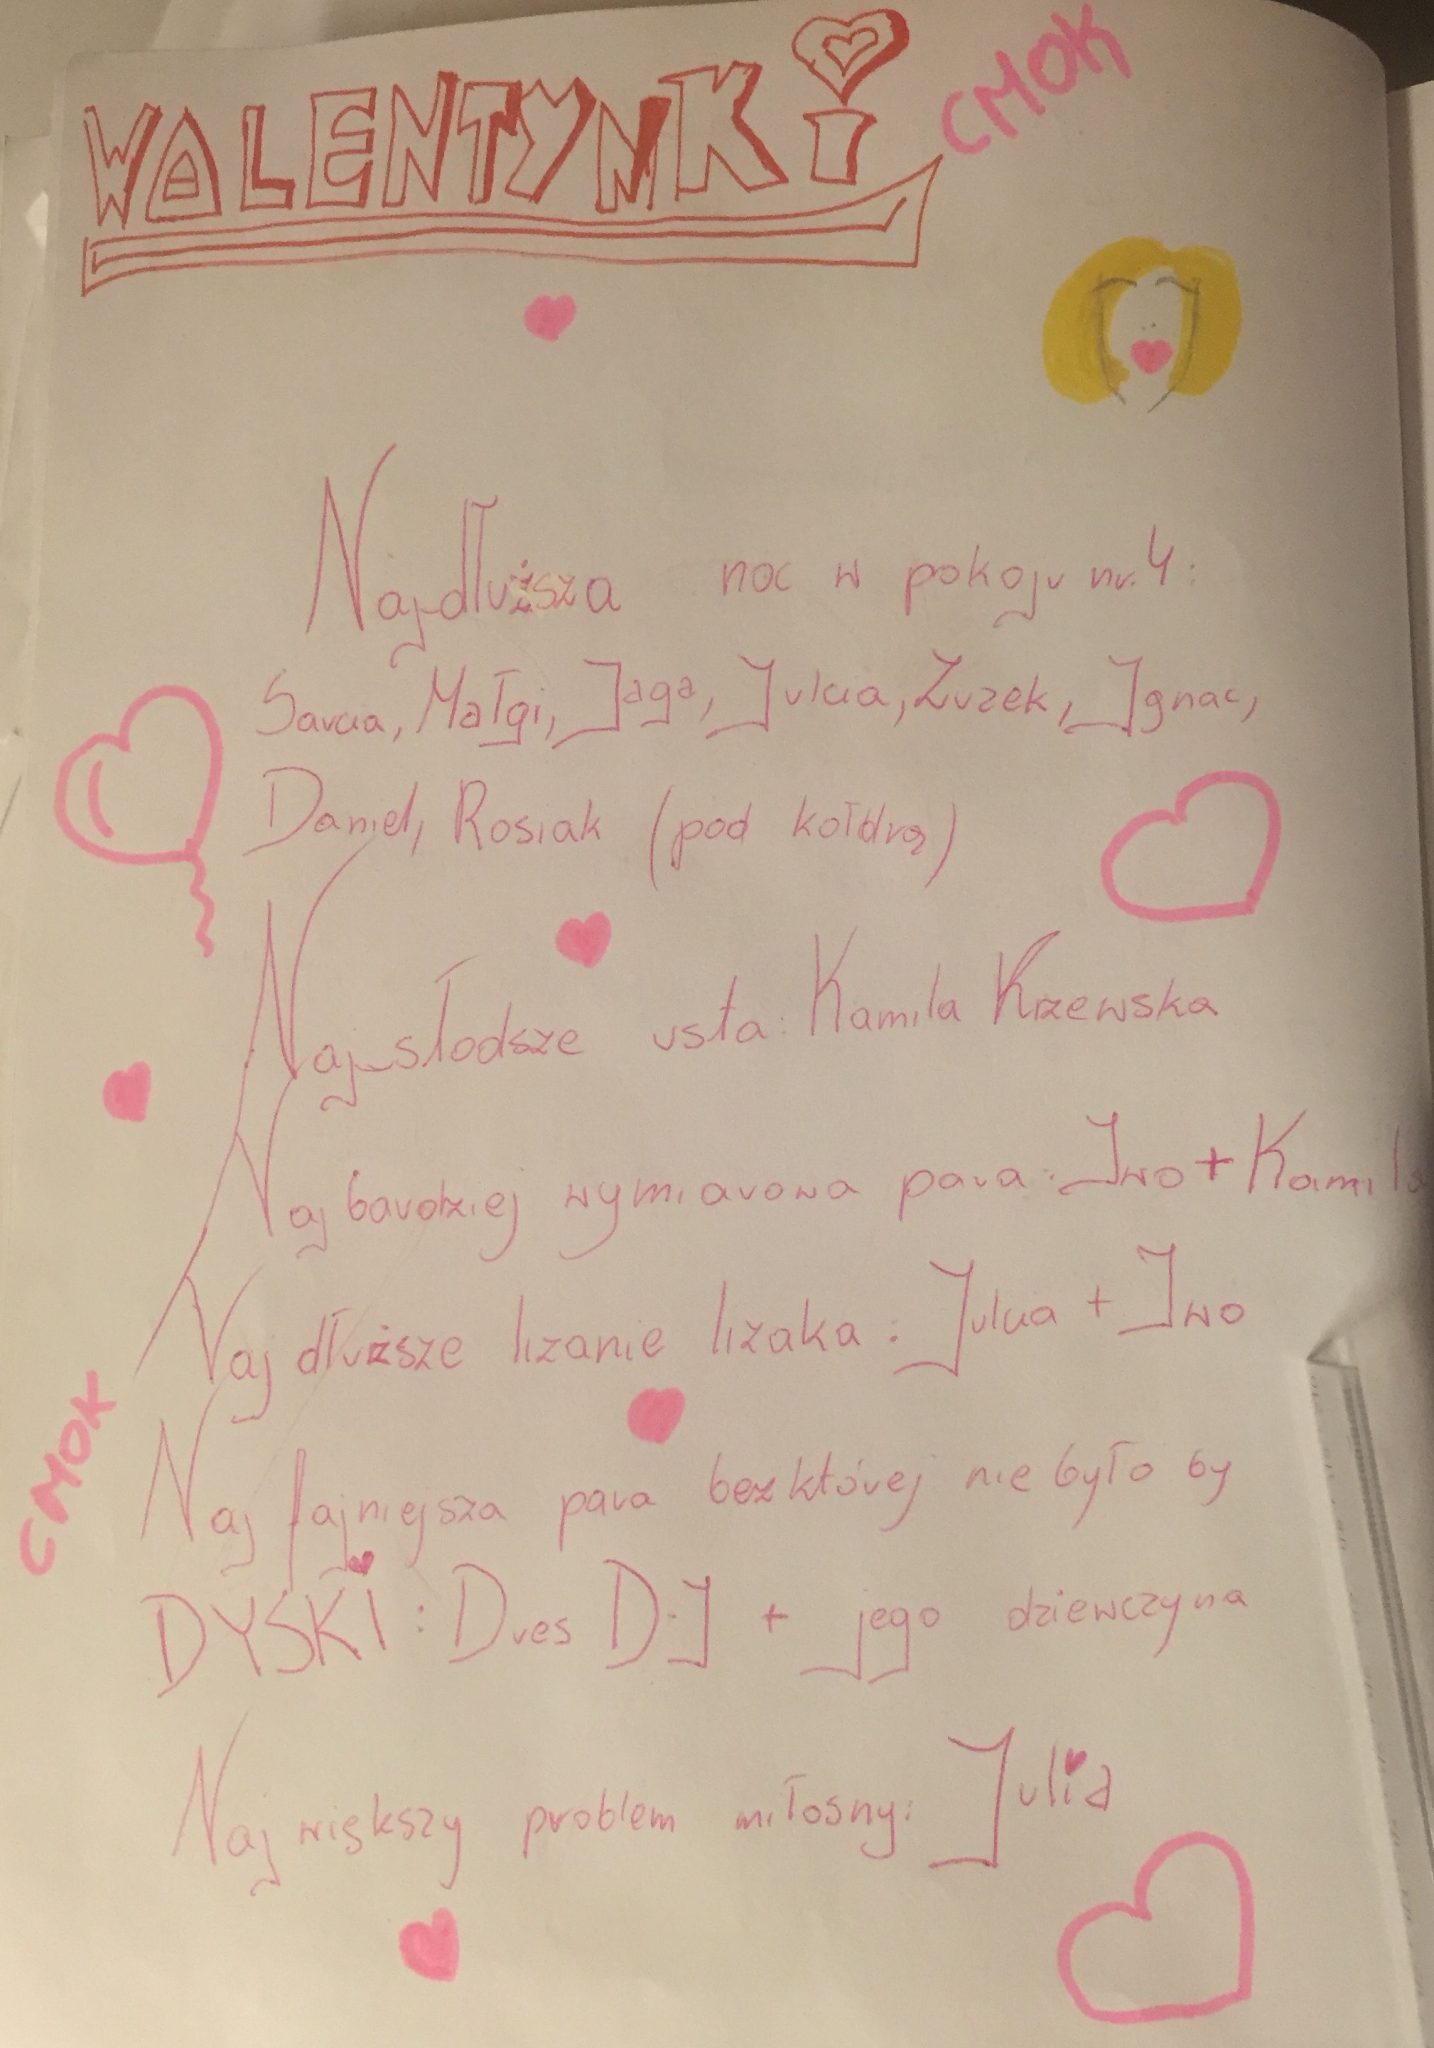 WALENTYNKI
CMOK
Najdłuższa noc w pokoju nr. 4:
Sarcia, Małgi, Jaga, Julcia, Żurek, Ignac,
Daniel, Rosiak (pod kołdrą)
Najsłodsze usta: Kamila Krzewska
Naj bardziej wymiarowa para: Iwo + Kamila
Naj dłuższe lizanie lizaka: Julcia + Iwo
CMOK
Naj fajniejsza para bez której nie było by
DYSKI: Dres D.J + jego dziewczyna
Naj większy problem miłosny: Julia